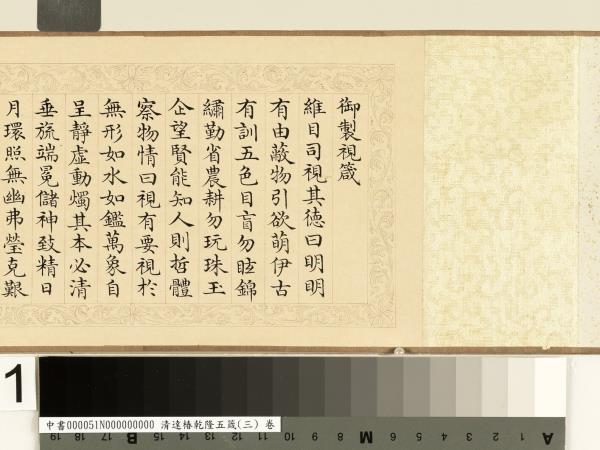 御製視箴
維目司視其德曰明明
有由蔽物引欲萌伊古
有訓五色目盲勿眩錦
繡勤省農耕勿玩珠玉
企望賢能知人則哲體
察物情曰視有要視於
無形如水如鑑萬象自
呈靜虛動燭其本必清
垂旒端冕儲神致精日
月環照無幽弗瑩克艱
1
中書000051N000000000 清達椿乾隆五箴(三) 卷
19 18 17 16 15 14 13 12 11 10 9 8 7 6 5 4 3 2 1
B M A